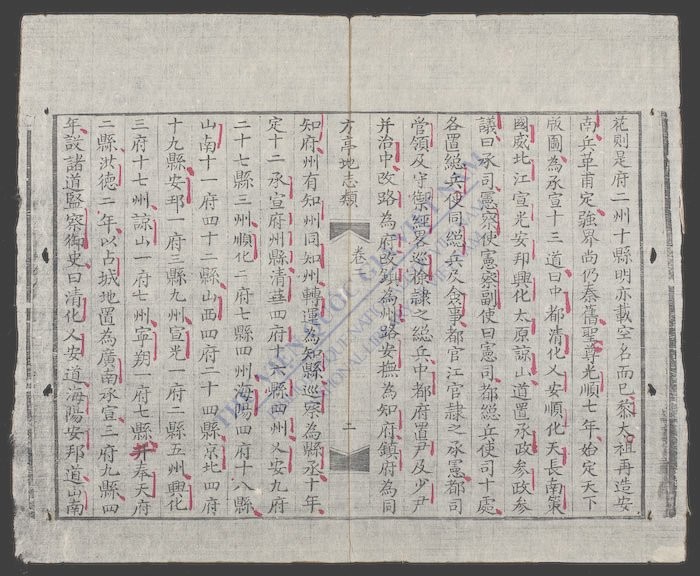 花則是府二州十縣明亦載空名而已黎太祖再造安
南兵革甫定強界尚仍秦舊聖尊光順七年始定天下
版圖為承宣十三道曰中都清化乂安順化天長南策
國威北江宣光安邦興化太原諒山道置承政參政參
議曰承司憲察使憲察副使曰憲司都緫兵使司十處
各置緫兵使同緫兵及僉事都官江官隸之承憲都司
管領及守禦經畧巡檢隸之緫兵中都府置尹及少尹
并治中改路為府改鎮為州路安撫為知府鎮府為同
方亭地志類 卷 二
知府州有知州同知州轉運為知縣巡察為縣丞十年
定十二承宣府州縣清華四府縣四州乂安九府
二十七縣三州順化二府七縣四州海陽四府十八縣
山南十一府四十二縣山西四府二十四縣京北四府
十九縣安邦一府三縣九州宣光一府二縣五州興化
三府十七州諒山一府七州寧朔一府七縣并奉天府
二縣洪德二年以占城地置為廣南承宣三府九縣四
年設諸道監察御史曰清化乂安道海陽安邦道山南